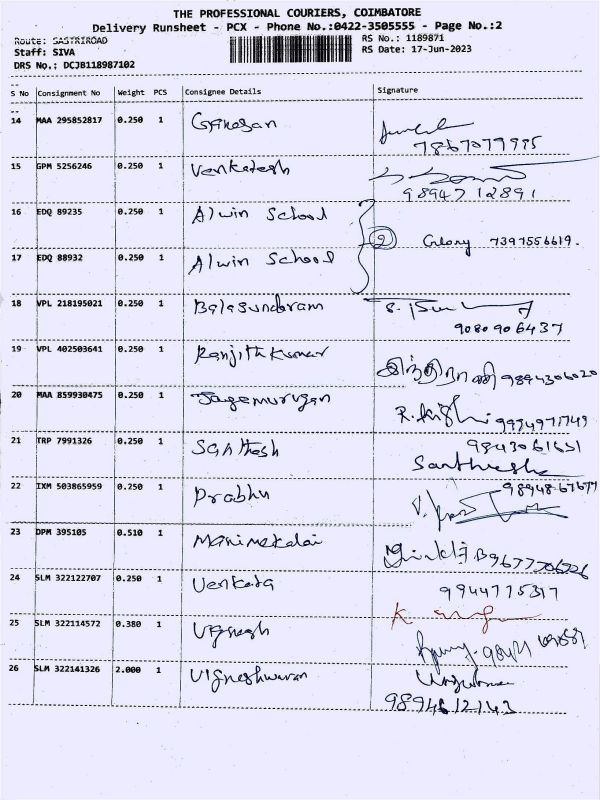 THE PROFESSIONAL COURIERS, COIMBATORE
Delivery Runsheet - PCX - Phone No.:0422-3505555 - Page No.:2
Route: SASTRIROAD
RS No.: 1189871
Staff: SIVA
RS Date: 17-Jun-2023
DRS No.: DCJB118987102
S No Consignment No Weight PCS Consignee Details Signature
14 MAA 295852817 0.250 1 Ganesan
7867079995
15 GPM 5256246 0.250 1 Venkatesh
9894712891
16 EDQ 89235 0.250 1 Alwin School
2 Glory 7397556619.
17 EDQ 88932 0.250 1 Alwin School
18 VPL 218195021 0.250 1 Balasundaram
9080906437
19 VPL 402503641 0.250 1 Ranjithkumar
இந்திராணி 9894306020
20 MAA 859930475 0.250 1 Jagamurugan
21 TRP 7991326 0.250 1 Santhosh
9843061651
22 IXM 503865959 0.250 1 Prabhu
23 DPM 395105 0.510 1 Manimekalai
24 SLM 322122707 0.250 1 Venkata
9944775317
25 SLM 322114572 0.380 1 Vignesh
26 SLM 322141326 2.000 1 Vigneshwaran
9894612143